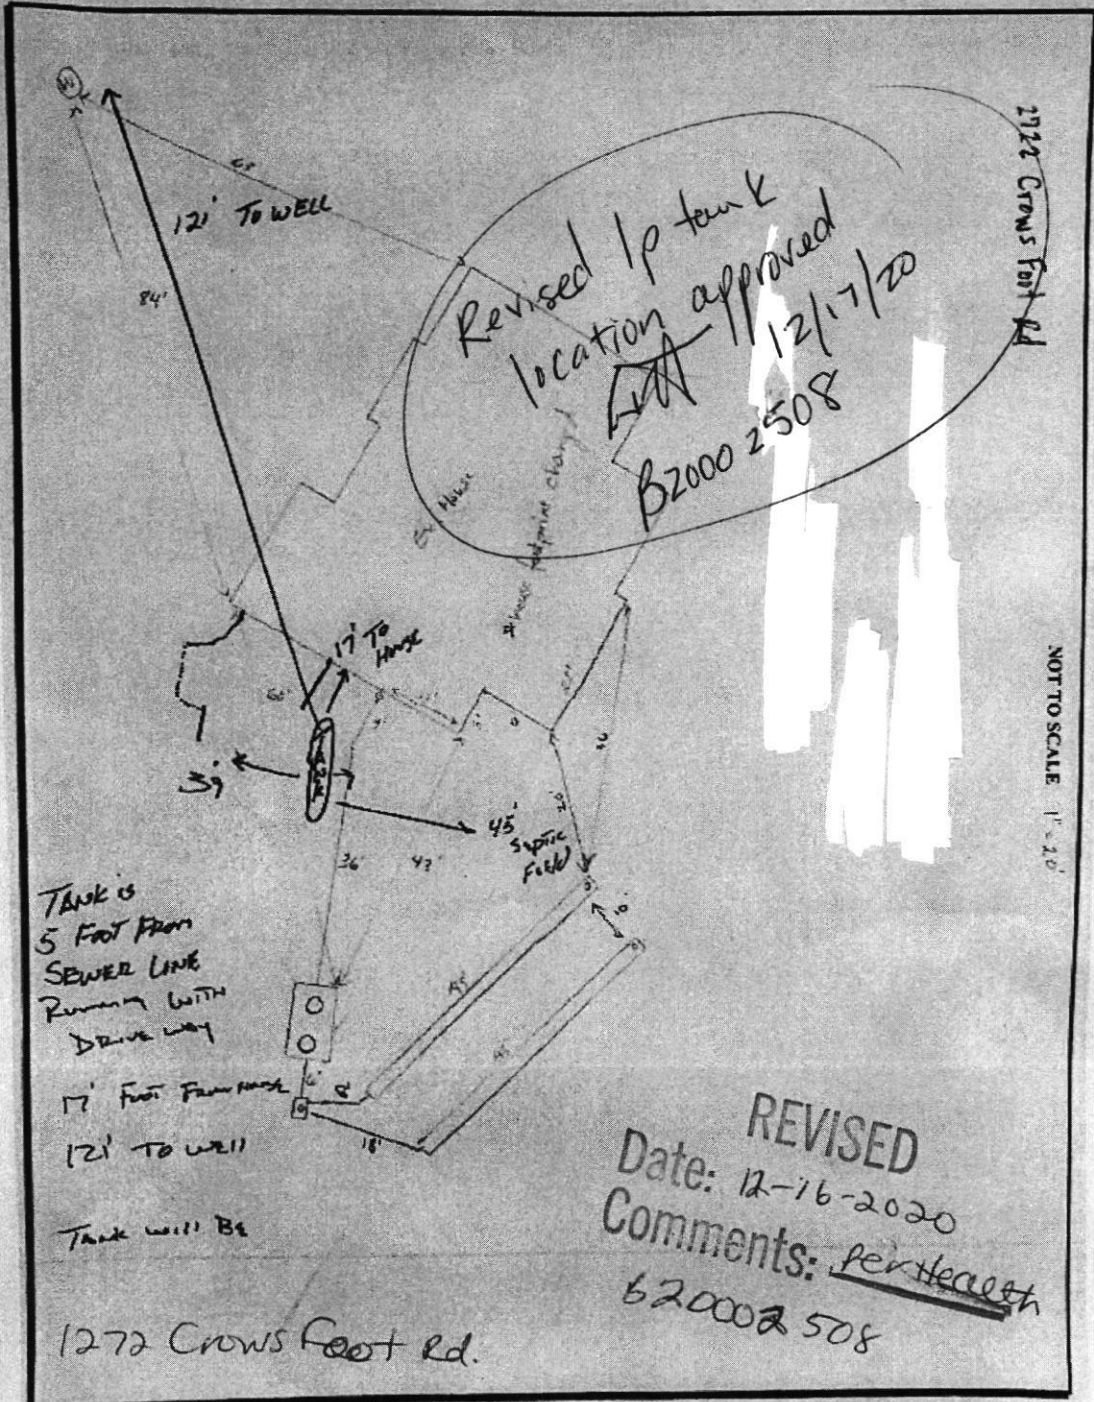 2722 Crows Foot Rd
121' TO WELL
84'
Revised lp tank
location approved
12/17/20
B20002508
Ex House
*house footprint changed
17' TO
House
39'
45'
Septic
Field
20'
36'
47'
NOT TO SCALE 1" = 20'
TANK is
5 FOOT FROM
SEWER LINE
Running WITH
DRIVE WAY
17' FOOT FROM HOUSE
121' TO WELL
TANK WILL BE
6'
8'
18'
REVISED
Date: 12-16-2020
Comments: Per Health
B20002508
1272 Crows Foot Rd.